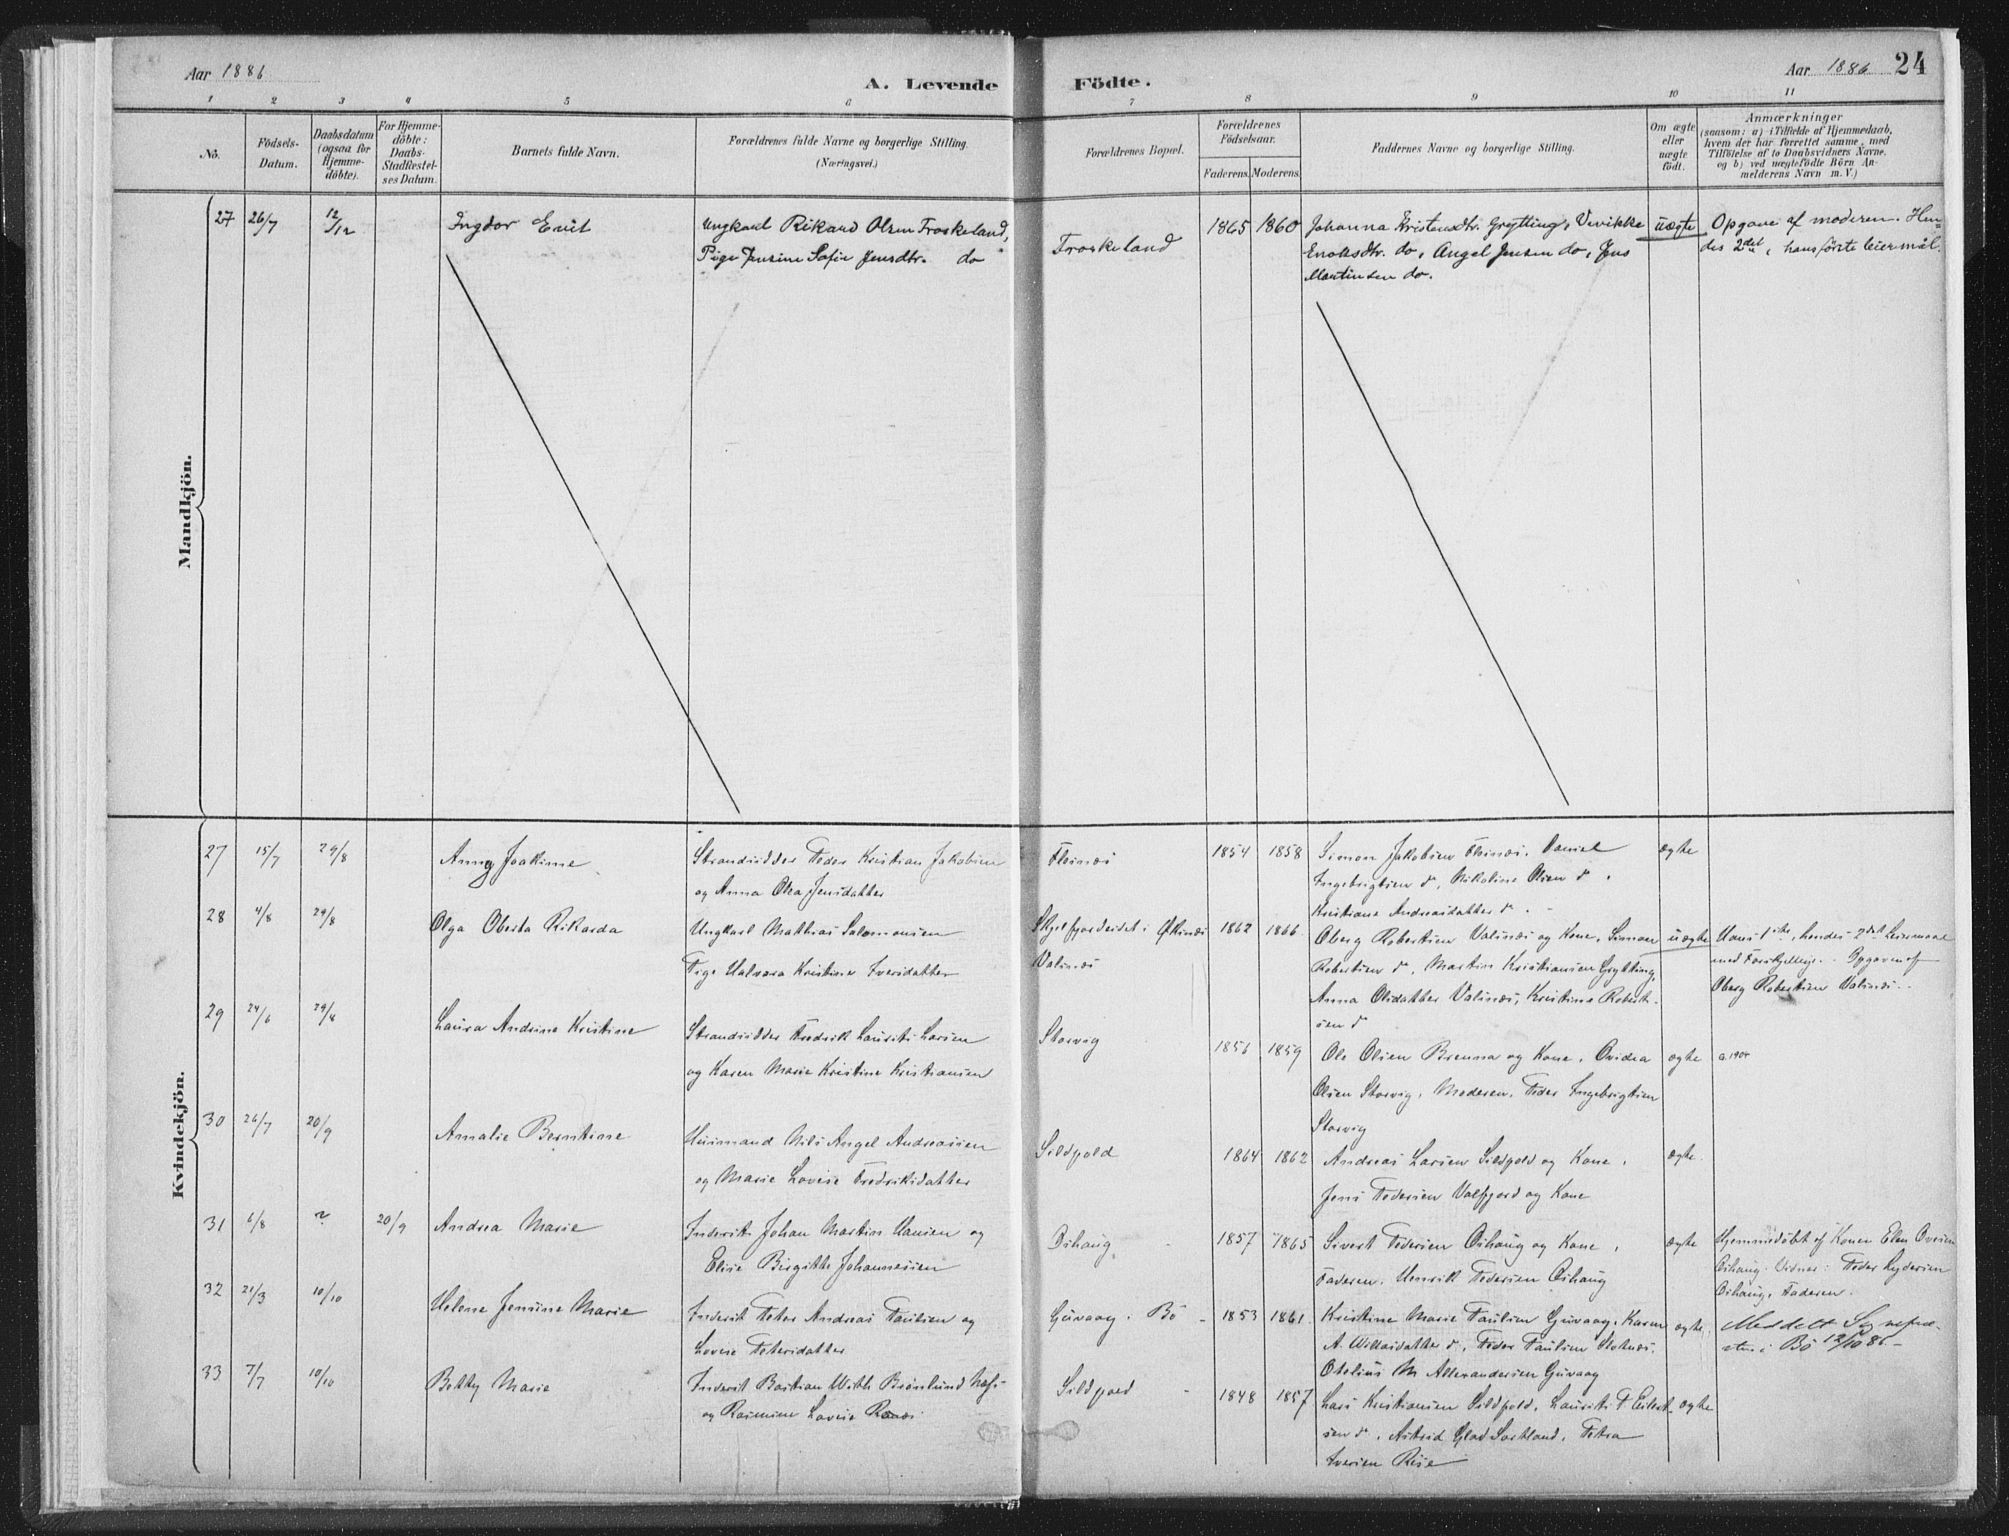 Aar 1886
A. Levende Födte.
Aar 1886 24
1 2 3 4 5 6 7 8 9 10 11
No.
Födsels-Datum.
Daabsdatum (ogsaa for Hjemmedöbte).
For Hjemmedöbte: Daabs-Stadfæstelses Datum.
Barnets fulde Navn.
Forældrenes fulde Navne og borgerlige Stilling. (Næringsvei.)
Forældrenes Bopæl.
Forældrenes Födselsaar.
Faderens. Moderens.
Faddernes Navne og borgerlige Stilling.
Om ægte eller uægte födt.
Anmærkninger
(saasom: a) i Tilfælde af Hjemmedaab,
hvem der har forrettet samme, med
Tilföielse af to Daabsvidners Navne,
og b) ved uægtefödte Börn An-
melderens Navn m. V.)
Mandkjön.
27 26/7 12/12 Ingdor Enit Ungkarl Rikard Olsen Froskeland, Froskeland 1865 1860 Johanna Kristensdtr. Grytting, Vivikke uægte Opgave af moderen. Hen-
Pige Jensine Sofie Jensdtr. do Enoksdtr. do, Angel Jensen do, Jens des 2det, hans förste leiermål.
Martinsen do.
Kvindekjön.
27 15/7 29/8 Anny Joakime Strandsidder Peder Kristian Jakobsen Fleines 1854 1858 Simon Jakobsen Fleines, Daniel ægte
og Anna Olea Jensdatter Ingebrigtsen d, Nikoline Olsen d,
Kristiane Andreasdatter d.
28 4/8 29/8 Olga Oberta Rikarda Ungkarl Mathias Salomonsen Skjelfjordeidet i Øksnes 1862 1866 Oberg Robertsen Valsnes og Kone, Simon uægte Hans 1ste, hendes 2det Leiermaal
Pige Halvara Kristine Iversdatter Valsnes Robertsen d, Martin Kristiansen Grytting,
Oberg Robertsen Valsnes.
Anna Olsdatter Valsnes, Kristine Robert-
sen d
29 24/6 29/8 Laura Andrine Kristine Strandsidder Fredrik Laurits Larsen Storvig 1856 1859 Ole Olsen Brenna og Kone, Ovidea ægte
og Karen Marie Kristine Kristiansen Olsen Storvig, Moderen, Peder Ingebrigtsen
Storvig
30 26/7 20/9 Amalie Berntine Husmand Nils Angel Andreassen Sildpold 1864 1862 Andreas Larsen Sildpold og Kone, ægte
og Marie Lovise Fredriksdatter Jens Pedersen Valfjord og Kone
31 6/8 ? 20/9 Andrea Marie Inderst Johan Martin Hansen og Oshaug 1857 1865 Sivert Pedersen Oshaug og Kone, ægte Hjemmedøbt af Konen Elen Oversen
Elise Birgitte Johannessen Faderen, Henrik Pedersen Oshaug Oshaug. Vidner: Peder Lydersen
Oshaug, Faderen.
32 21/3 10/10 Helene Jensine Marie Inderst Peter Andreas Paulsen og Guvaag, Bö 1853 1861 Kristine Marie Paulsen Guvaag, Karen ægte. Meddelt Sognepræ-
Lovise Petersdatter A. Willasdatter d, Peder Paulsen
sten i Bö 12/10 86
Otelius M Alexandersen Guvaag
33 7/7 10/10 Betty Marie Inderst Bastian With Brönlund Næs Sildpold 1848 1857 Lars Kristiansen Sildpold, Laurits P Eilert- ægte
og Rasmine Lovise sen d, Astrid Glad Sortland, Petra
Iversen Rise